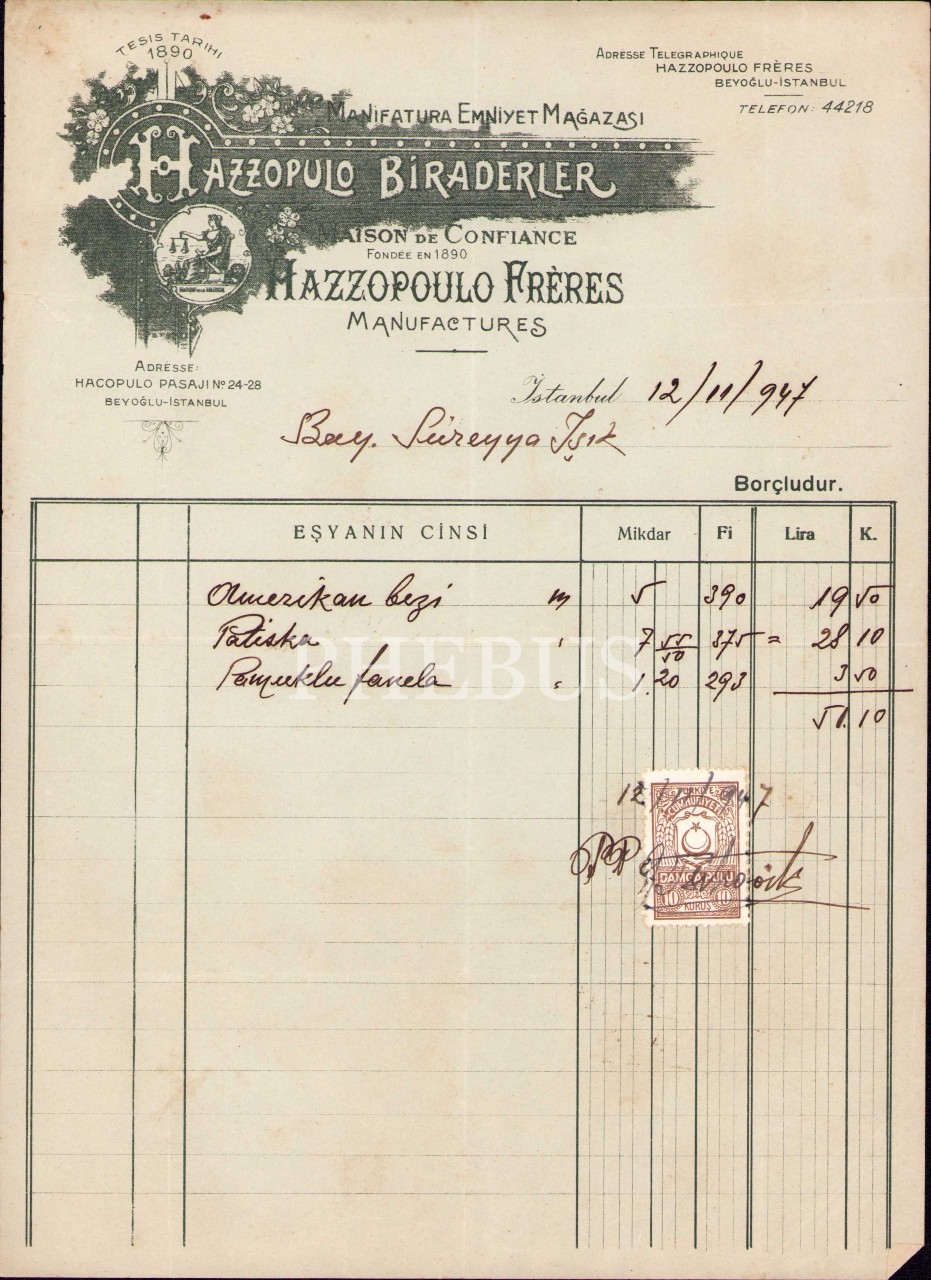 TESIS TARIHI
1890
ADRESSE TELEGRAPHIQUE
HAZZOPOULO FRÈRES
BEYOĞLU-İSTANBUL
TELEFON: 44218
MANİFATURA EMNİYET MAĞAZASI
HAZZOPULO BİRADERLER
MAISON DE CONFIANCE
FONDÉE EN 1890
HAZZOPOULO FRÈRES
MANUFACTURES
ADRESSE:
HACOPULO PASAJI Nº 24-28
BEYOĞLU-İSTANBUL
İstanbul 12/11/947
Bay. Süreyya Işık
Borçludur.
EŞYANIN CİNSİ Mikdar Fi Lira K.
Amerikan bezi m 5 390 19 50
Patiska " 7 55/50 375 = 28 10
Pamuklu fanela " 1.20 293 3 50
51.10
PHEBUS
12/11/947
TÜRKİYE
CUMHURİYETİ
PP
DAMGA PULU
10 10
KURUŞ